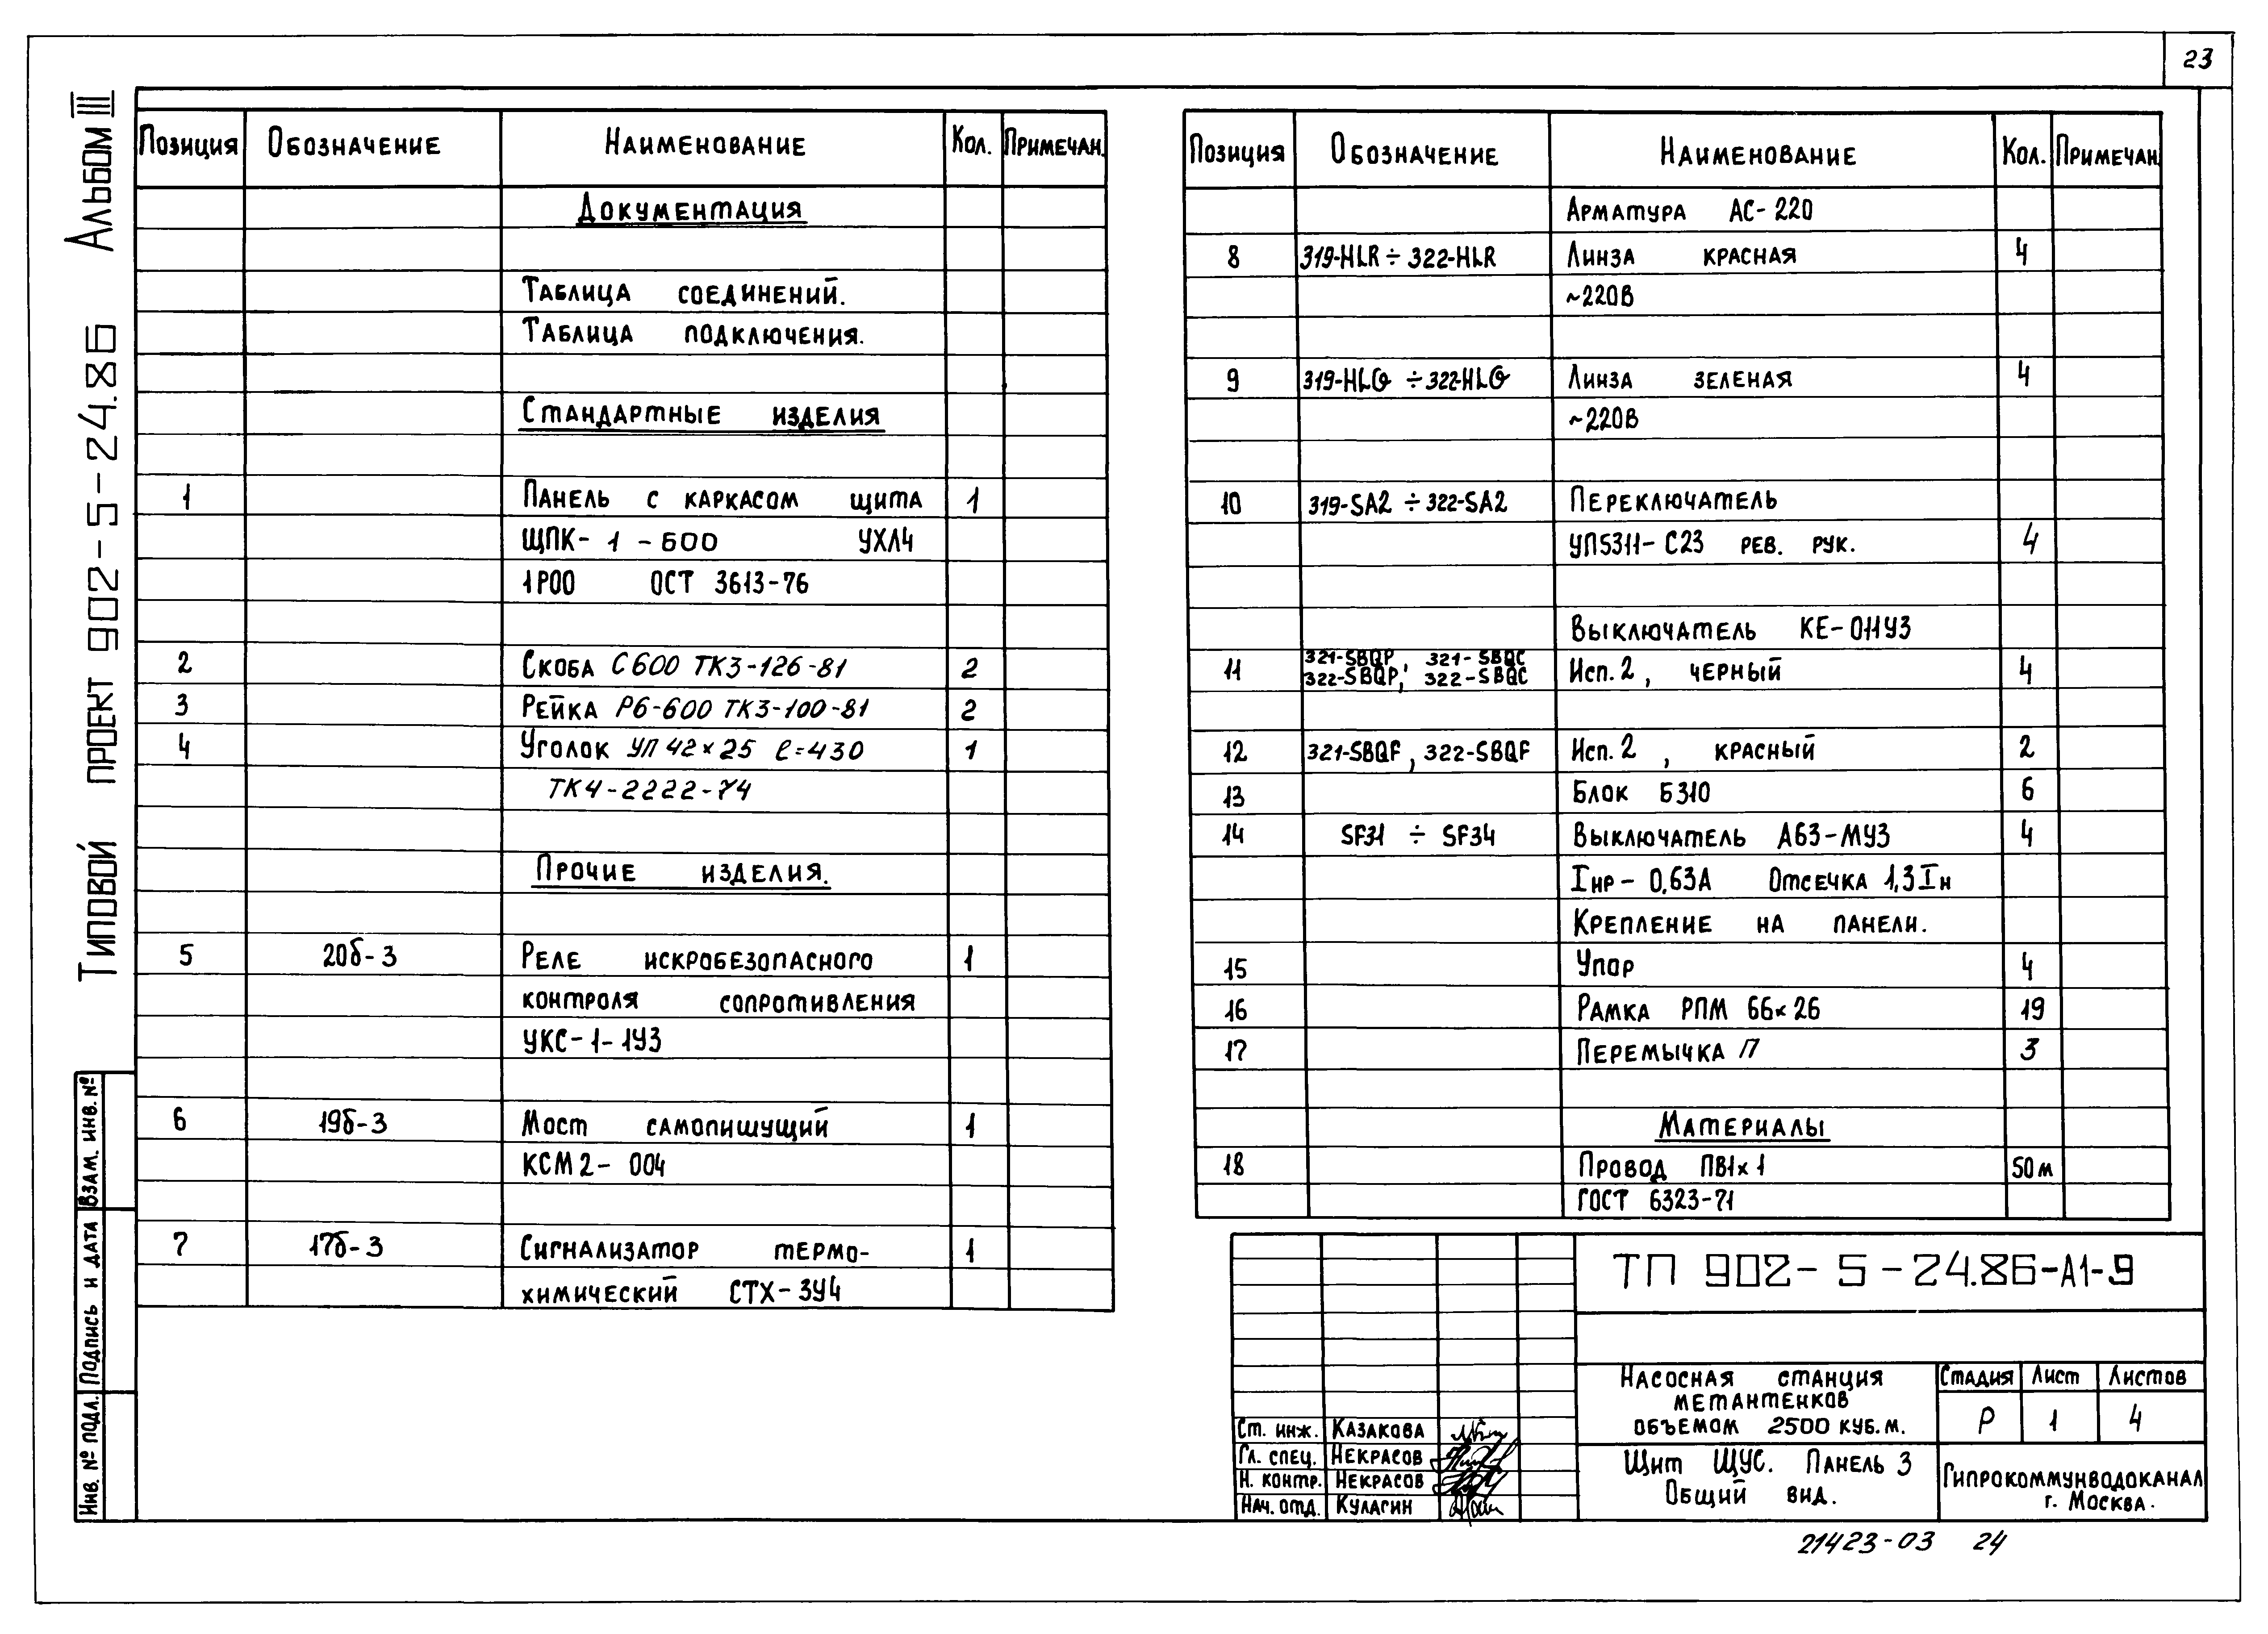 23
Типовой проект 902-5-24.86 Альбом III
Позиция Обозначение Наименование Кол. Примечан.
Документация
Таблица соединений.
Таблица подключения.
Стандартные изделия
1 Панель с каркасом щита 1
ЩПК-1-600 УХЛ4
1Р00 ОСТ 3613-76
2 Скоба С600 ТК3-126-81 2
3 Рейка Р6-600 ТК3-100-81 2
4 Уголок УП 42×25 ℓ=430 1
ТК4-2222-74
Прочие изделия.
5 20б-3 Реле искробезопасного 1
контроля сопротивления
УКС-1-1У3
6 19б-3 Мост самопишущий 1
КСМ2-004
7 17б-3 Сигнализатор термо- 1
химический СТХ-3У4
Позиция Обозначение Наименование Кол. Примечан.
Арматура АС-220
8 319-HLR ÷ 322-HLR Линза красная 4
~220В
9 319-HLG ÷ 322-HLG Линза зеленая 4
~220В
10 319-SA2 ÷ 322-SA2 Переключатель
УП5311-С23 рев. рук. 4
Выключатель КЕ-011У3
11 321-SBQP, 321-SBQC Исп. 2, черный 4
322-SBQP; 322-SBQC
12 321-SBQF, 322-SBQF Исп. 2, красный 2
13 Блок Б310 6
14 SF31 ÷ SF34 Выключатель А63-МУ3 4
Iнр-0,63А Отсечка 1,3Iн
Крепление на панели.
15 Упор 4
16 Рамка РПМ 66×26 19
17 Перемычка П 3
Материалы
18 Провод ПВ1×1 50м
ГОСТ 6323-71
ТП 902-5-24.86-А1-9
Насосная станция
метантенков
объемом 2500 куб.м.
Стадия Лист Листов
Р 1 4
Ст. инж. Казакова
Гл. спец. Некрасов
Н. контр. Некрасов
Нач. отд. Кулагин
Щит ЩУС. Панель 3
Общий вид.
Гипрокоммунводоканал
г. Москва.
Инв. № подл. Подпись и дата Взам. инв. №
21423-03 24